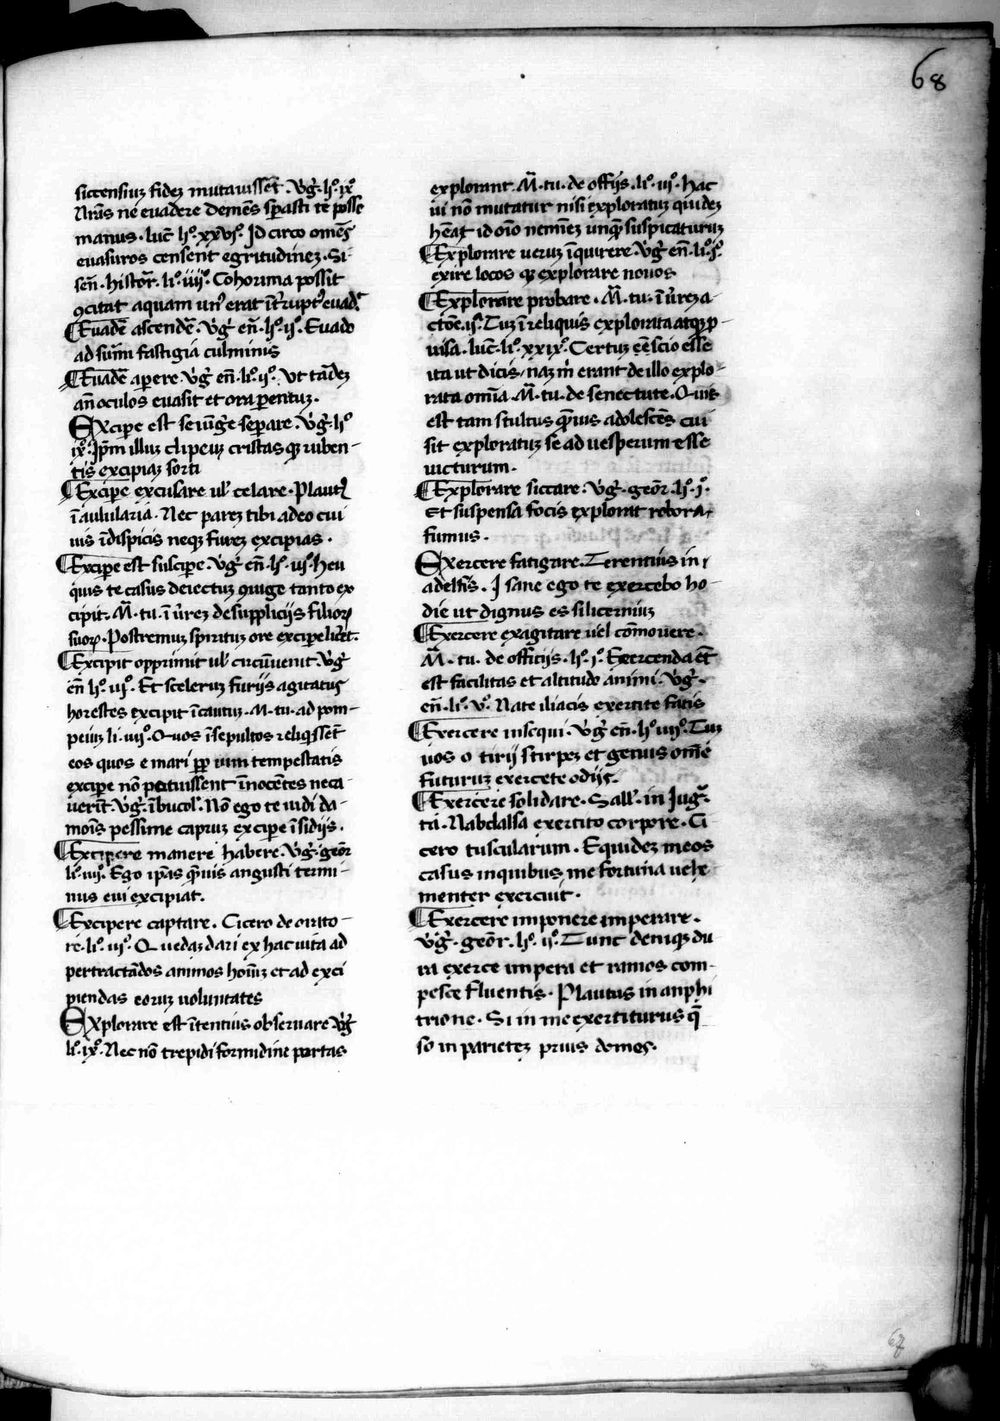 68
siccensiuʒ fideʒ mutauisset̄. v̄g̊. lı̊. ıx̊
Nr̄as ne euadere demēs sp̄asti te posse
manus. luc̄ lı̊. xxvı̊. Id circo omēs
euasuros censent egritudineʒ. Si
señ. histor̄. li̊. iiij̊. Cohorum a possit
ꝯcitat aquam un̄ erat īt̄rupt̄ euad̄.
¶Euadē ascendē. v̄g̊ eñ. lı̊. ıȷ̊. Euado
ad sum̄i fastigia culminis
¶Euadē aꝑere. v̄g̊ eñ. li̊. ıȷ̊. vt tādeʒ
añ oculos euasit et ora ꝑentuʒ.
Excipe est seiūgē seꝑare. v̄g̊. lı̊
ıx̊. Ip̄m illuʒ clipeuʒ cristasqʒ ruben-
tis excipiaʒ sorti
¶Exciꝑe excusare ul' celare. Plaut̄
ī aulularia. Nec pareʒ tibi adeo cui
uis īdispicis neqʒ fureʒ excipias.
¶Exciꝑe est susciꝑe. v̄g̊ eñ. lı̊. ııȷ̊. heu
quis te casus deiectuʒ ꝯiuge tanto ex
cipit. M̄. tu. ī u̇reʒ de suppliciis filioꝝ
suoꝝ. Postremuʒ spirituʒ ore exciꝑe licet̄.
¶Excipit opprimit ul' circūuenit. v̄g̊
eñ lı̊. ııȷ̊. Et sceleruʒ furijs agitatus
horestes excipit īcautuʒ. M. tu. ad pom-
peiuʒ li. iiıȷ̊. Quos īsepultos reliq̇sset̄
eos quos e mari ꝓp̄ uim tempestatis
exciꝑe nō potuissent īnocētes neca
uerīt. v̄g̊. ī bucol'. Nō ego te uidi da-
monīs pessime capruʒ exciꝑe īsidijs.
¶Excipere manere habere. v̄g̊. geor̄
li̊. iiıȷ̊. Ego ip̄as q̄uis angusti termi-
nus eui excipiat.
¶Excipere captare. Cicero de orato-
re. li̊. ııȷ̊. Quedaʒ dari ex hac uita ad
pertractādos animos hoīuʒ et ad exci
piendas eoruʒ uoluntates
Explorare est ītentius obseruare v̄g̊
li̊. ıx̊. Nec nō trepidi formidine portas
explorant. M̄. tu. de offijs. li̊. ııȷ̊. hac
ui nō mutatur nisi exploratuʒ quideʒ
hēat id oīo nemīeʒ unq̄ suspicaturuʒ
¶Explorare ueruʒ īquirere. v̄g̊ eñ. li̊. ȷ̊.
exire locos qʒ explorare nouos
¶Explorare probare. M̄. tu. ī u̇reʒ a-
ctōe. ıȷ̊. Tuʒ ī reliquis explorata atqʒ ꝓ-
uisa. luc̄. li̊. xxıx̊. Certuʒ eē scio esse
ita ut dicis / naʒ m̄ erant de illo explo-
rata omīa. M̄. tu. de senectute. Quis
est tam stultus q̄uis adolescēs cui
sit exploratuʒ se ad uesperum esse
uicturum.
¶Explorare siccare. v̄g̊. geor̄. lı̊. ȷ̊.
Et suspensa focis explorat robora
fumus.
Exercere fatigare. Terentius in
adelfis. I sane ego te exercebo ho-
die ut dignus es silicerniuʒ
¶Exercere exagitare uel cōmouere.
M̄. tu. de officijs. lı̊. ȷ̊. Exercenda et̄
est facilitas et altitudo animi. v̄g̊.
eñ. li̊. v̊. Nate iliacis exercite fatis
¶Exercere inscqui. v̄g̊ eñ. li̊. iiıȷ̊. Tuʒ
uos o tirij stirpeʒ et genus omē
futuruʒ exercete odijs.
¶Exercere solidare. Sall'. in Jug̊.
ta. Nabdalsa exercito corpore. Ci
cero tuscularum. Equideʒ meos
casus in quibus me fortuna uehe
menter exercuit.
¶Exercere imponere imperare.
v̄g̊. geor̄. li̊. ıȷ̊. Tunc deniqʒ du
ra exerce impera et ramos com-
pesce fluentis. Plautus in anphi
trione. Si in me exertiturus q̄
so in parieteʒ prius domes.